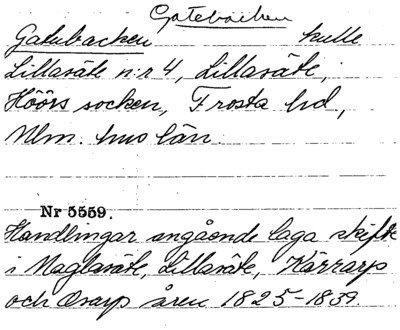 Gatebacken
Gatubacken kulle
Lillasäte n:r 4, Lillasäte,
Höörs socken, Frosta hd,
Mlm. hus län.
Nr 5559.
Handlingar angående laga skifte
i Maglasäte, Lillasäte, Kärrarp
och Orarp åren 1825-1839.